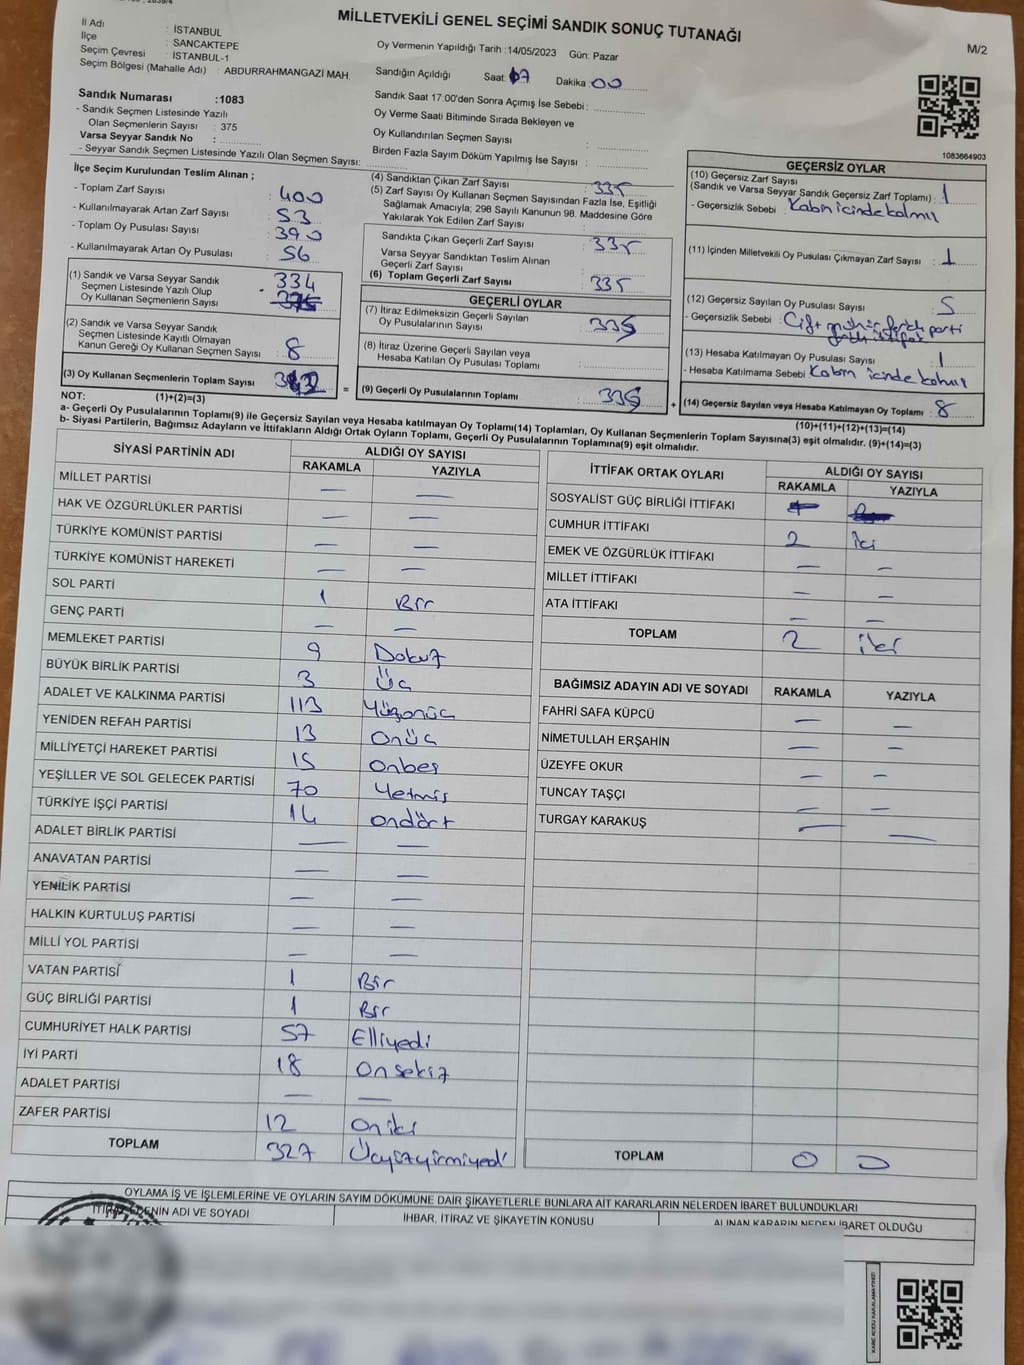 MİLLETVEKİLİ GENEL SEÇİMİ SANDIK SONUÇ TUTANAĞI
M/2
İl Adı : İSTANBUL
İlçe : SANCAKTEPE
Seçim Çevresi : İSTANBUL-1
Seçim Bölgesi (Mahalle Adı) : ABDURRAHMANGAZİ MAH.
Oy Vermenin Yapıldığı Tarih :14/05/2023 Gün: Pazar
Sandığın Açıldığı Saat: 17 Dakika: 00
Sandık Saat 17:00'den Sonra Açımış İse Sebebi :
Oy Verme Saati Bitiminde Sırada Bekleyen ve
Oy Kullandırılan Seçmen Sayısı :
Birden Fazla Sayım Döküm Yapılmış İse Sayısı :
Sandık Numarası :1083
- Sandık Seçmen Listesinde Yazılı
Olan Seçmenlerin Sayısı : 375
Varsa Seyyar Sandık No :
- Seyyar Sandık Seçmen Listesinde Yazılı Olan Seçmen Sayısı:
1083664903
İlçe Seçim Kurulundan Teslim Alınan ;
- Toplam Zarf Sayısı : 400
- Kullanılmayarak Artan Zarf Sayısı : 53
- Toplam Oy Pusulası Sayısı : 390
- Kullanılmayarak Artan Oy Pusulası : 56
(1) Sandık ve Varsa Seyyar Sandık
Seçmen Listesinde Yazılı Olup
Oy Kullanan Seçmenlerin Sayısı 334
375
(2) Sandık ve Varsa Seyyar Sandık
Seçmen Listesinde Kayıtlı Olmayan
Kanun Gereği Oy Kullanan Seçmen Sayısı : 8
(3) Oy Kullanan Seçmenlerin Toplam Sayısı
(4) Sandıktan Çıkan Zarf Sayısı : 335
(5) Zarf Sayısı Oy Kullanan Seçmen Sayısından Fazla İse, Eşitliği
Sağlamak Amacıyla; 298 Sayılı Kanunun 98. Maddesine Göre
Yakılarak Yok Edilen Zarf Sayısı :
Sandıkta Çıkan Geçerli Zarf Sayısı : 335
Varsa Seyyar Sandıktan Teslim Alınan
Geçerli Zarf Sayısı :
(6) Toplam Geçerli Zarf Sayısı : 335
GEÇERLİ OYLAR
(7) İtiraz Edilmeksizin Geçerli Sayılan
Oy Pusulalarının Sayısı : 335
(8) İtiraz Üzerine Geçerli Sayılan veya
Hesaba Katılan Oy Pusulası Toplamı :
= (9) Geçerli Oy Pusulalarının Toplamı : 335
GEÇERSİZ OYLAR
(10) Geçersiz Zarf Sayısı
(Sandık ve Varsa Seyyar Sandık Geçersiz Zarf Toplamı) : 1
- Geçersizlik Sebebi : Kabın icinde kalmıs
(11) İçinden Milletvekili Oy Pusulası Çıkmayan Zarf Sayısı : 1
(12) Geçersiz Sayılan Oy Pusulası Sayısı : 5
- Geçersizlik Sebebi : Çift mühür farklı parti
farklı ittifak
(13) Hesaba Katılmayan Oy Pusulası Sayısı : 1
- Hesaba Katılmama Sebebi : Kabın icinde kalmıs
+ (14) Geçersiz Sayılan veya Hesaba Katılmayan Oy Toplamı : 8
NOT: (1)+(2)=(3)
(10)+(11)+(12)+(13)=(14)
a- Geçerli Oy Pusulalarının Toplamı(9) ile Geçersiz Sayılan veya Hesaba katılmayan Oy Toplamı(14) Toplamları, Oy Kullanan Seçmenlerin Toplam Sayısına(3) eşit olmalıdır. (9)+(14)=(3)
b- Siyasi Partilerin, Bağımsız Adayların ve İttifakların Aldığı Ortak Oyların Toplamı, Geçerli Oy Pusulalarının Toplamına(9) eşit olmalıdır.
SİYASİ PARTİNİN ADI ALDIĞI OY SAYISI
RAKAMLA YAZIYLA
MİLLET PARTİSİ — —
HAK VE ÖZGÜRLÜKLER PARTİSİ — —
TÜRKİYE KOMÜNİST PARTİSİ — —
TÜRKİYE KOMÜNİST HAREKETİ — —
SOL PARTİ 1 Bir
GENÇ PARTİ — —
MEMLEKET PARTİSİ 9 Dokuz
BÜYÜK BİRLİK PARTİSİ 3 Üç
ADALET VE KALKINMA PARTİSİ 113 Yüzonüc
YENİDEN REFAH PARTİSİ 13 Onüç
MİLLİYETÇİ HAREKET PARTİSİ 15 Onbeş
YEŞİLLER VE SOL GELECEK PARTİSİ 70 Yetmiş
TÜRKİYE İŞÇİ PARTİSİ 14 Ondört
ADALET BİRLİK PARTİSİ — —
ANAVATAN PARTİSİ — —
YENİLİK PARTİSİ — —
HALKIN KURTULUŞ PARTİSİ — —
MİLLİ YOL PARTİSİ — —
VATAN PARTİSİ 1 Bir
GÜÇ BİRLİĞİ PARTİSİ 1 Bir
CUMHURİYET HALK PARTİSİ 57 Elliyedi
İYİ PARTİ 18 Onsekiz
ADALET PARTİSİ — —
ZAFER PARTİSİ 12 Oniki
TOPLAM 327 Üçyüzyirmiyedi
İTTİFAK ORTAK OYLARI ALDIĞI OY SAYISI
RAKAMLA YAZIYLA
SOSYALİST GÜÇ BİRLİĞİ İTTİFAKI
CUMHUR İTTİFAKI 2 İki
EMEK VE ÖZGÜRLÜK İTTİFAKI — —
MİLLET İTTİFAKI — —
ATA İTTİFAKI — —
TOPLAM 2 iki
BAĞIMSIZ ADAYIN ADI VE SOYADI RAKAMLA YAZIYLA
FAHRİ SAFA KÜPCÜ — —
NİMETULLAH ERŞAHİN — —
ÜZEYFE OKUR — —
TUNCAY TAŞÇI — —
TURGAY KARAKUŞ — —
TOPLAM 0 0
OYLAMA İŞ VE İŞLEMLERİNE VE OYLARIN SAYIM DÖKÜMÜNE DAİR ŞİKAYETLERLE BUNLARA AİT KARARLARIN NELERDEN İBARET BULUNDUKLARI
İTİRAZ EDENİN ADI VE SOYADI İHBAR, İTİRAZ VE ŞİKAYETİN KONUSU ALINAN KARARIN NEDEN İBARET OLDUĞU